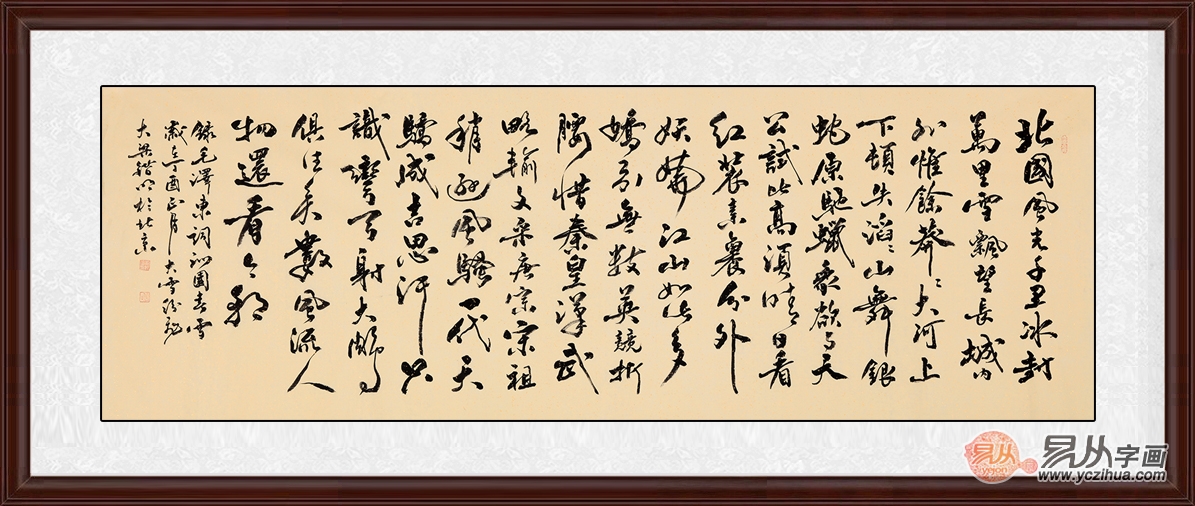 北國風光千里冰封
萬里雪飄望長城內
外惟餘莽〻大河上
下頓失滔〻山舞銀
蛇原馳蠟象欲与天
公試比高須晴日看
紅裝素裹分外
妖嬈江山如此多
嬌引無數英競折
腰惜秦皇漢武
略輸文采唐宗宋祖
稍遜風騷一代天
驕成吉思汗只
識彎弓射大鵰
俱往矣數風流人
物還看今朝
錄毛澤東詞沁園春雪
歲在丁酉正月大雪紛飛
大梁鍇明於北京
易从
yicon
易从字画
www.yczihua.com